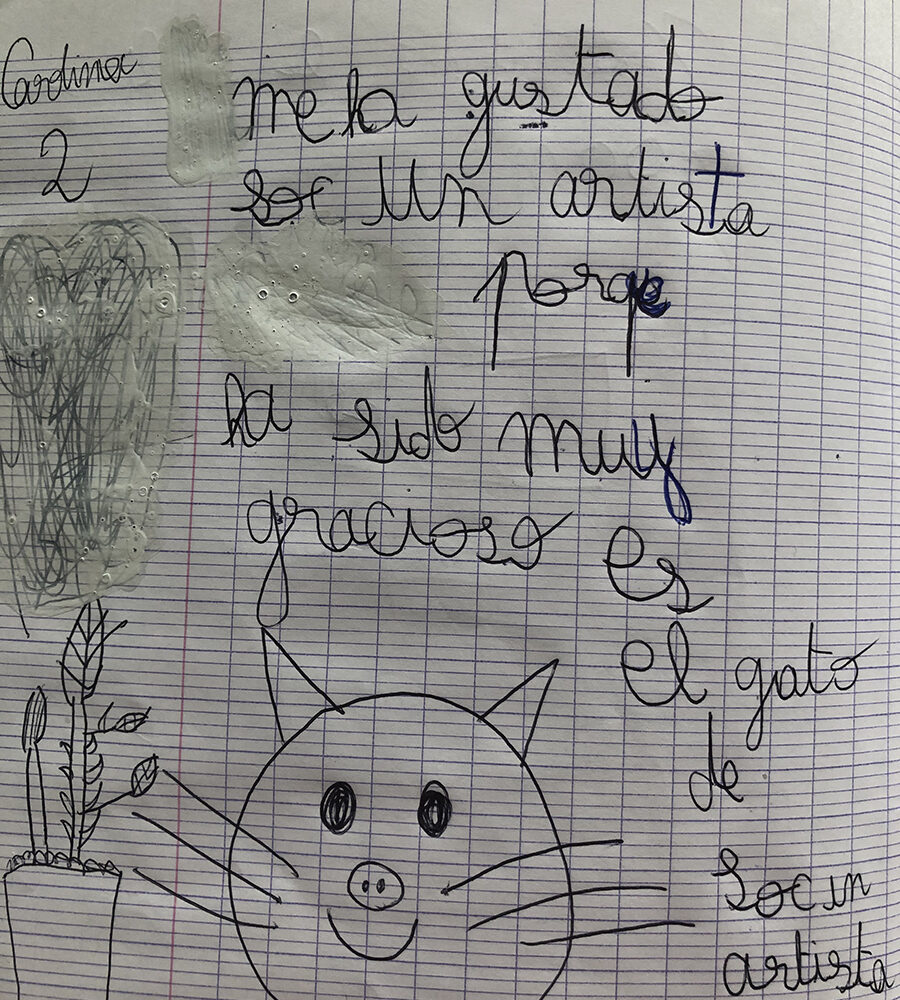 Cardinec
2
me ha gustado
soc Un artista
porqe
ha sido muy
gracioso es
el gato
de
Soc un
artista